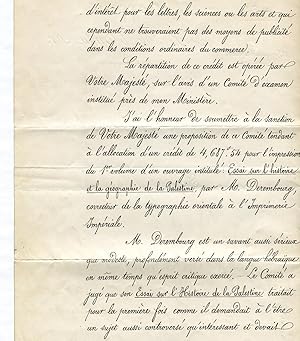 d'intérêt pour les lettres, les sciences ou les arts et qui
cependant ne trouveraient pas des moyens de publicité
dans les conditions ordinaires du commerce.
La repartition de ce crédit est opérée par
Votre Majesté, sur l'avis d'un Comité d'examen
institué près de mon Ministère.
J'ai l'honneur de soumettre à la sanction
de Votre Majesté une proposition de ce Comité tendant
à l'allocation d'un crédit de 4,687f 54 pour l'impression
du 1er volume d'un ouvrage intitulé: Essai sur l'histoire
et la géographie de la Palestine, par M. Derembourg,
correcteur de la typographie orientale à l'Imprimerie
Impériale.
M. Derembourg est un savant aussi sérieux
que modeste, profondément versé dans la langue hébraïque
en même temps qu'esprit critique exercé. Le Comité a
jugé que son Essai sur l'Histoire de la Palestine traitait
pour la première fois comme il demandait à l'être
un sujet aussi controversé qu'intéressant et devait